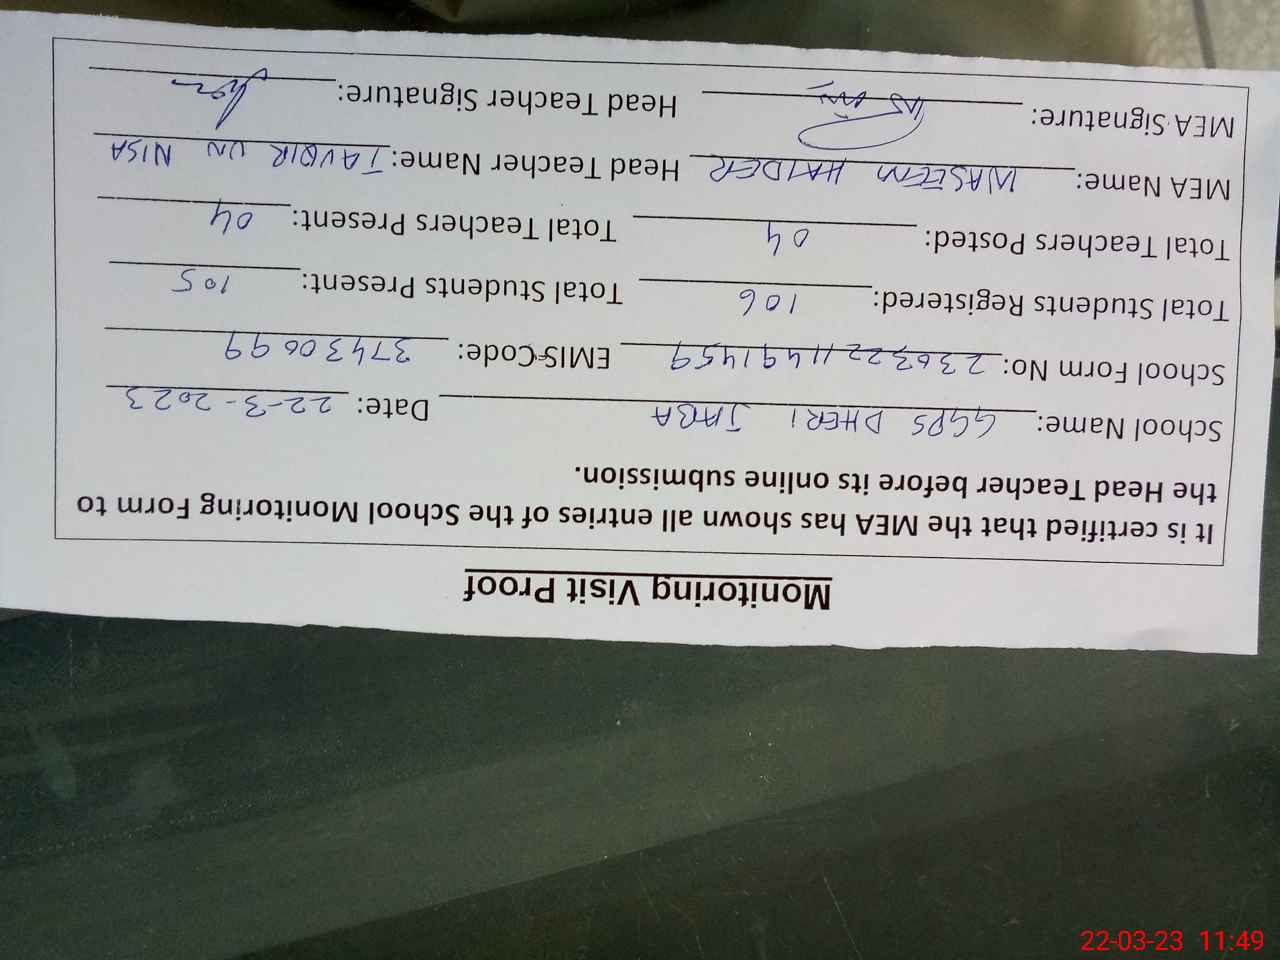 Monitoring Visit Proof
It is certified that the MEA has shown all entries of the School Monitoring Form to
the Head Teacher before its online submission.
School Name: GGPS DHERI JABA Date: 22-3-2023
School Form No: 23032211491459 EMIS Code: 37430699
Total Students Registered: 106 Total Students Present: 105
Total Teachers Posted: 04 Total Teachers Present: 04
MEA Name: WASEEM HAIDER Head Teacher Name: TAVQIR UN NISA
MEA Signature: Head Teacher Signature:
22-03-23 11:49